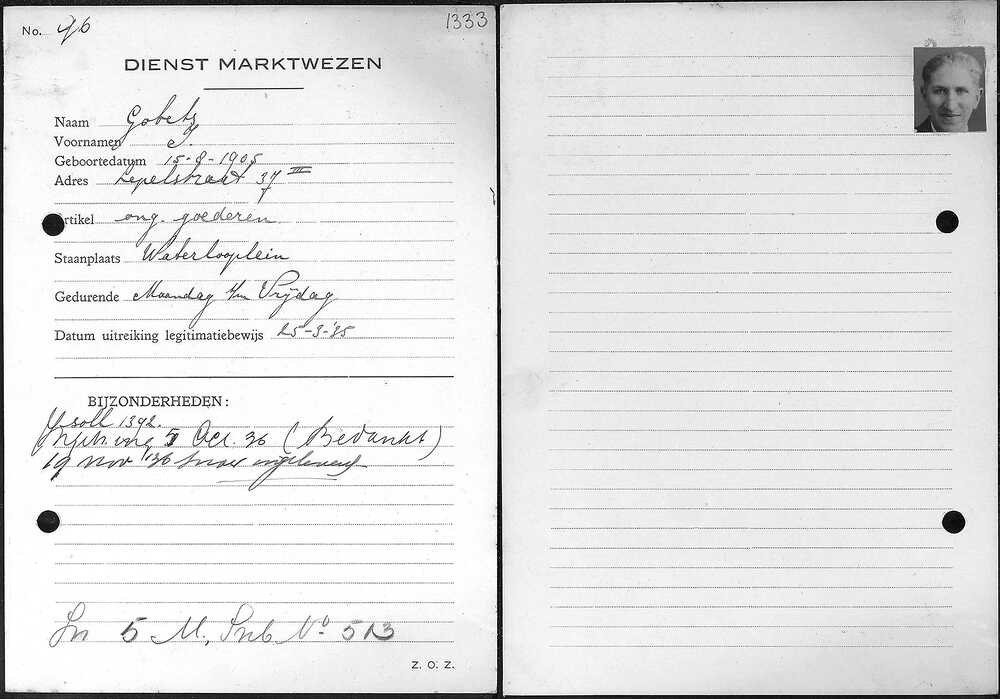 No. 96
1333
DIENST MARKTWEZEN
Naam Gobets
Voornamen J.
Geboortedatum 15-8-1905
Adres Lepelstraat 37 III
Artikel ong. goederen
Staanplaats Waterlooplein
Gedurende Maandag t/m Vrijdag
Datum uitreiking legitimatiebewijs 25-3-'35
BIJZONDERHEDEN:
V. soll 1392.
5 Oct. 36 (Bedankt)
19 Nov '36 ingeleverd
In 5 M, No. 513
Z. O. Z.